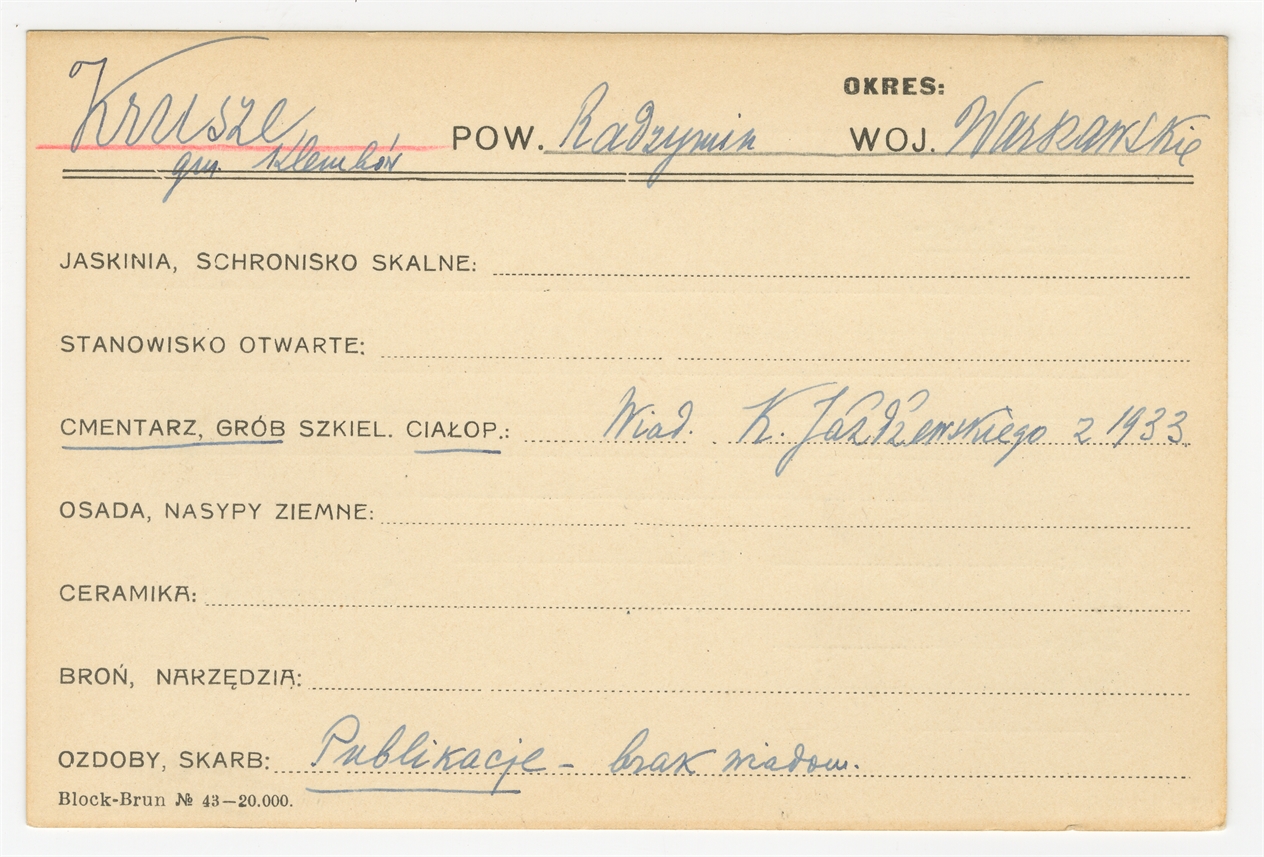 OKRES:
Krusze POW. Radzymin WOJ. Warszawskie
gm. Klembów
JASKINIA, SCHRONISKO SKALNE:
STANOWISKO OTWARTE:
CMENTARZ, GRÓB SZKIEL. CIAŁOP.: Wiad. K. Jażdżewskiego z 1933
OSADA, NASYPY ZIEMNE:
CERAMIKA:
BROŃ, NARZĘDZIA:
OZDOBY, SKARB: Publikacje - brak wiadom.
Block-Brun № 43—20.000.